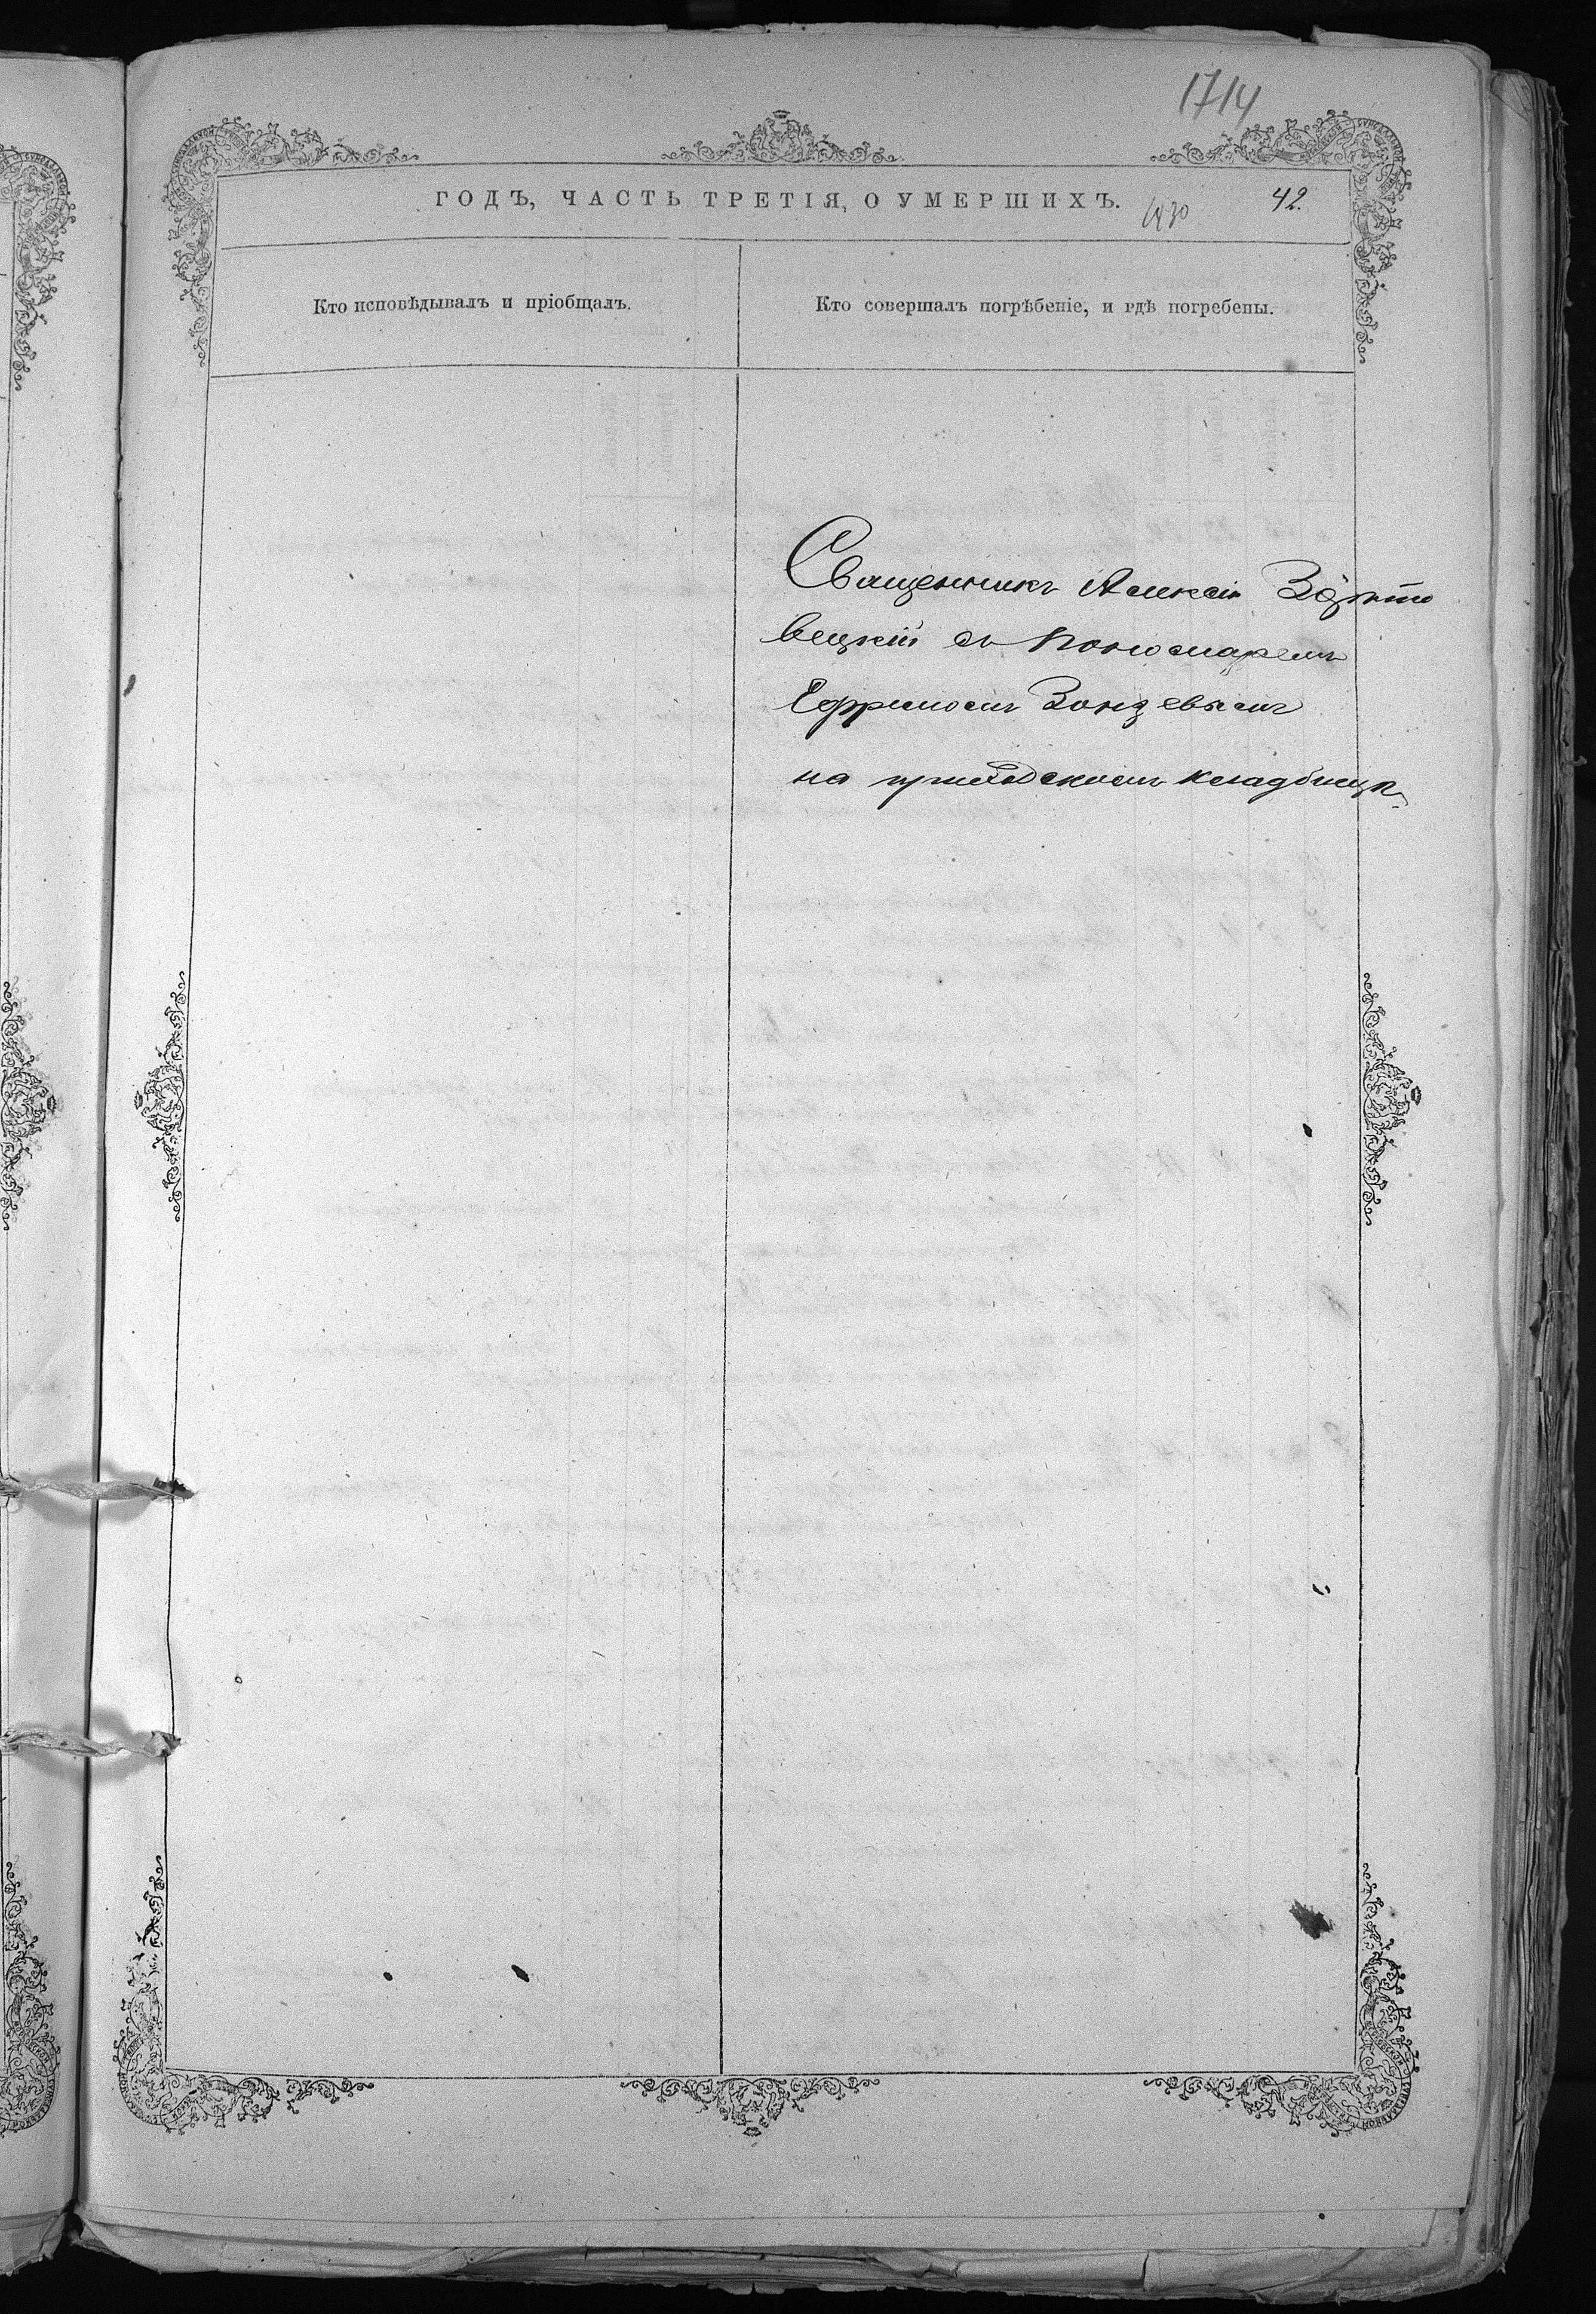 1714
ГОДЪ, ЧАСТЬ ТРЕТІЯ, О УМЕРШИХЪ.
42.
Кто исповѣдывалъ и пріобщалъ.
Кто совершалъ погрѣбеніе, и гдѣ погребены.
Священникъ Алексій
вецкій съ Пономаремъ
на приходскомъ кладбищѣ